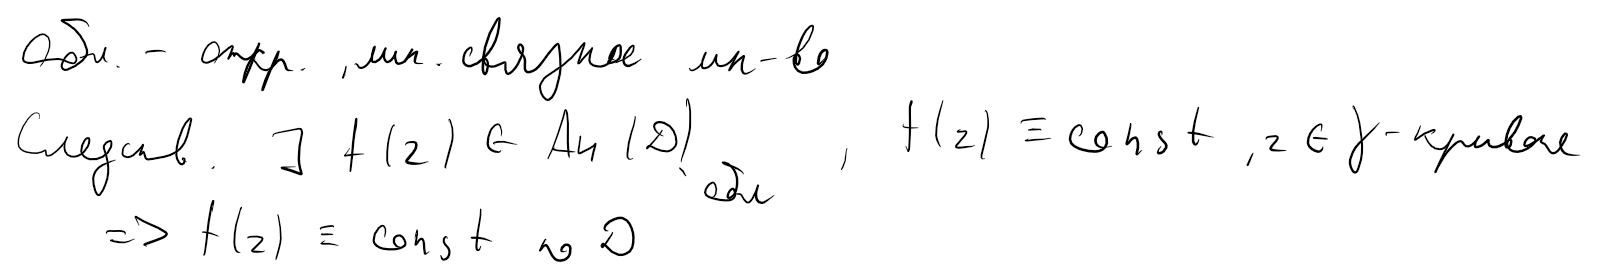 Обл. – откр., лин. связное мн-во
Следств. ] f(z) ∈ An(D) обл , f(z) ≡ const , z ∈ γ - кривая
=> f(z) ≡ const в D